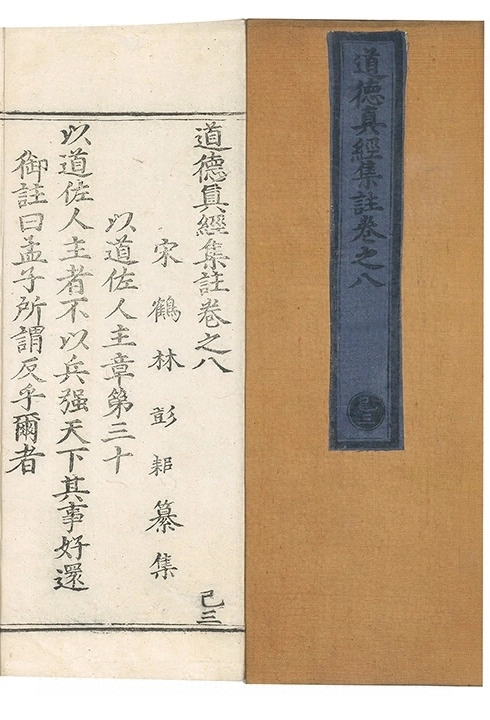 道德真經集註卷之八
己三
道德眞經集註卷之八
己三
宋鶴林彭耜纂集
以道佐人主章第三十
以道佐人主者不以兵强天下其事好還
御註曰孟子所謂反乎爾者